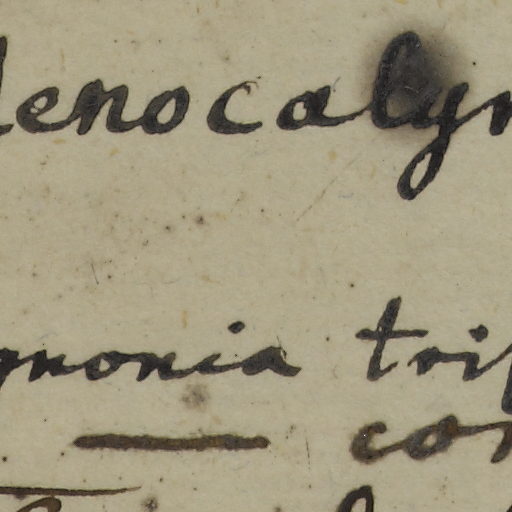 denocalyn
gnonia trif
— con